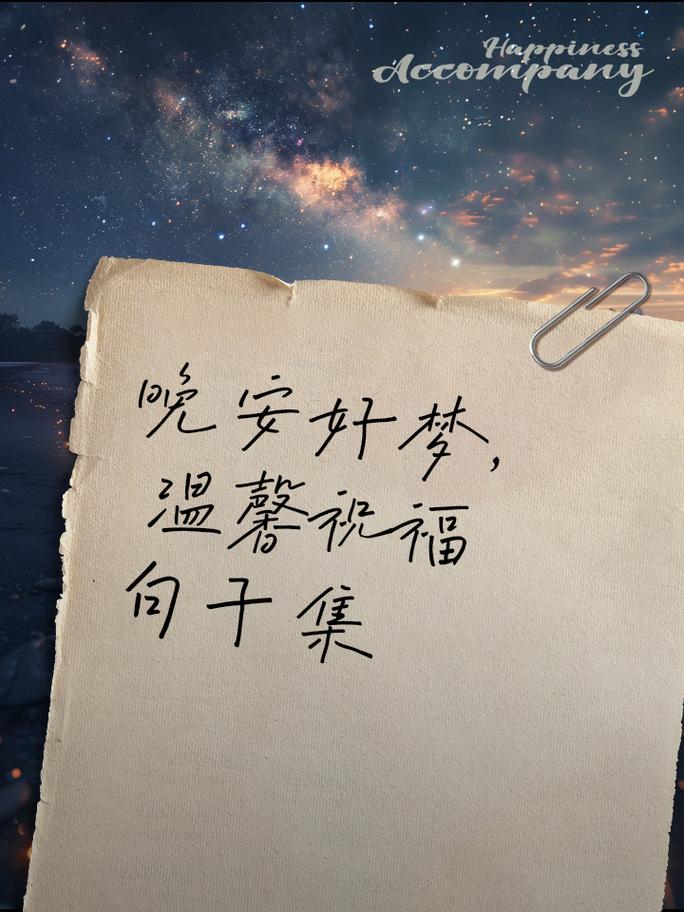 Happiness
Accompany
晚安好梦,
温馨祝福
句子集